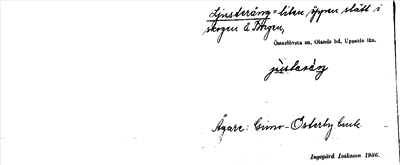 Ljusteräng = liten öppen slätt i
skogen å Skogen,
Österlövsta sn, Olands hd, Uppsala län.
Ägare: Gimo-Österby bruk
Ingegärd Isakson 1936.